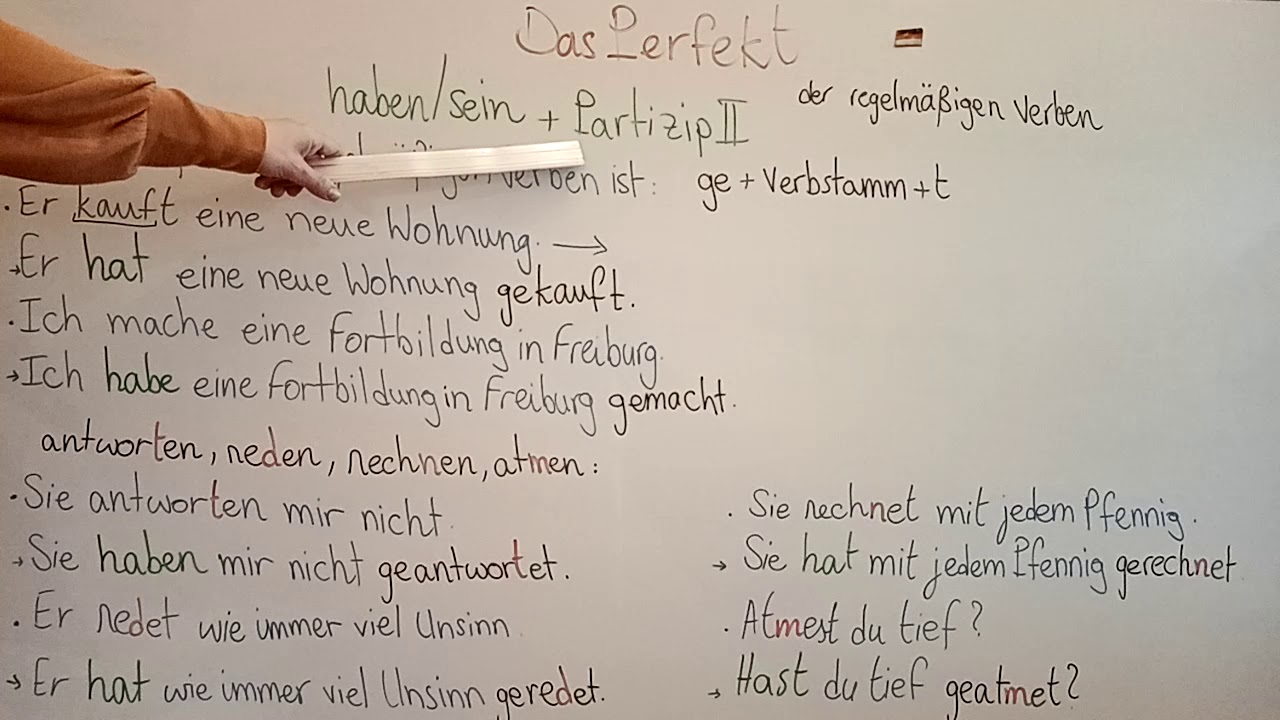 Das Perfekt
haben/sein + Partizip II der regelmäßigen Verben
Verben ist: ge + Verbstamm + t
. Er kauft eine neue Wohnung. →
→ Er hat eine neue Wohnung gekauft.
. Ich mache eine Fortbildung in Freiburg.
→ Ich habe eine Fortbildung in Freiburg gemacht.
antworten, reden, rechnen, atmen:
. Sie antworten mir nicht.
→ Sie haben mir nicht geantwortet.
. Er redet wie immer viel Unsinn.
→ Er hat wie immer viel Unsinn geredet.
. Sie rechnet mit jedem Pfennig.
→ Sie hat mit jedem Pfennig gerechnet
. Atmest du tief?
→ Hast du tief geatmet?